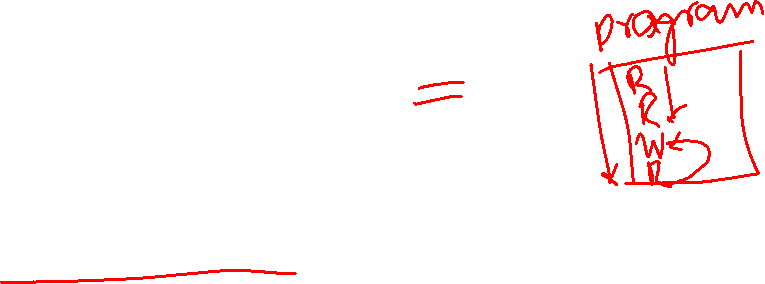 =
program
R
R
W
R